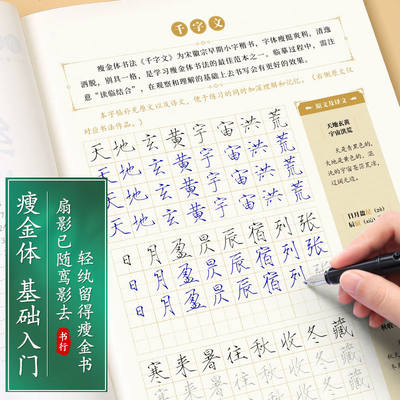 千字文
瘦金体书法《千字文》为宋徽宗早期小字楷书，字体瘦挺爽利，清逸
洒脱，别具一格，是学习瘦金体书法的最佳范本之一。临摹过程中，需注
意“读临结合”，在观察和理解的基础上去书写会有更好的效果。
本字帖补充原文以及译文，便于练习的同时加深理解和记忆。（右侧原文仅
对应书法作品。）
天地玄黄宇宙洪荒
天地玄黄宇宙洪荒
天地玄黄宇宙洪荒
天地玄黄宇宙洪荒
日月盈昃辰宿列张
日月盈昃辰宿列张
日月盈昃辰宿列张
寒来暑往秋收冬藏
寒来暑往秋收冬藏
原文及译文
天地玄黄
宇宙洪荒
天是青黑色的，
大地是黄色的，
过阔无边。
日月盈昃
辰宿
轻纨留得瘦金书
扇影已随鸾影去
书行
瘦金体 基础入门